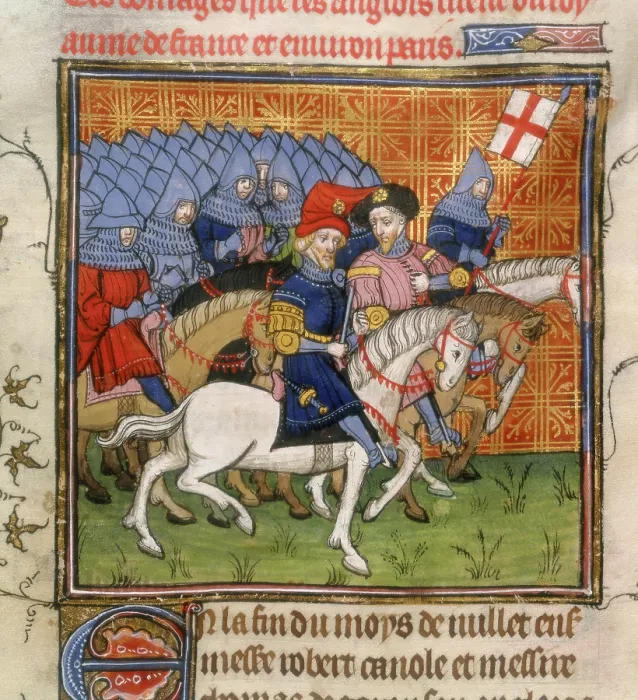 Des domages que les anglois firent ou roy
aume de france et enuiron paris.
En la fin du moys de iuillet ens
messe robert canole et messire